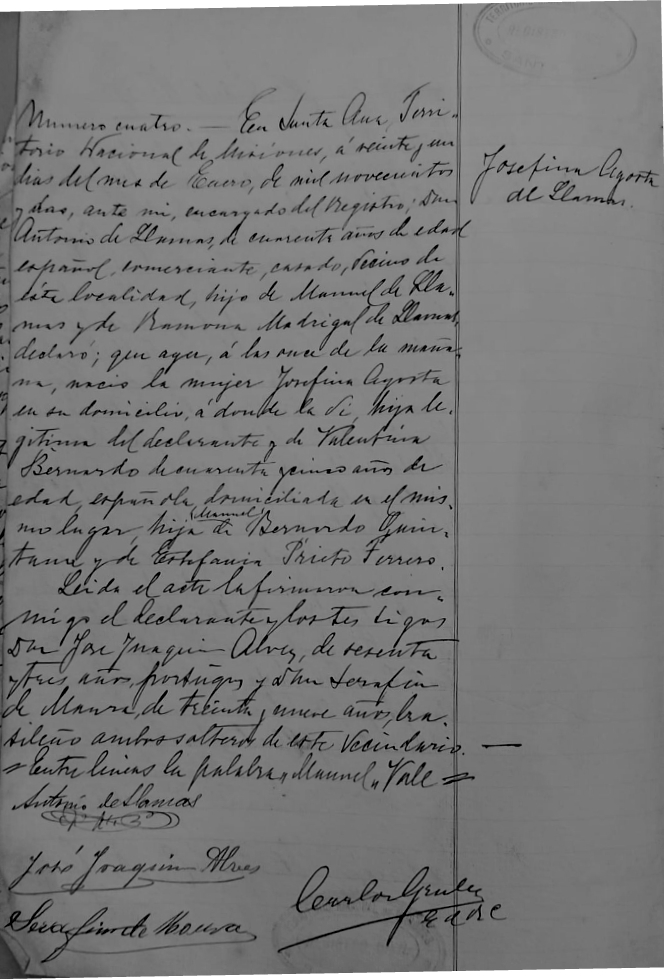 Numero cuatro. — En Santa Ana, Terri-
torio Nacional de Misiones, á veinte y un
dias del mes de Enero, de mil novecientos
y dos, ante mi, encargado del Registro; Don
Antonio de Llamas, de cuarenta años de edad
español, comerciante, casado, vecino de
ésta localidad, hijo de Manuel de Lla-
mas y de Ramona Madrigal de Llamas,
declaró; que ayer, á las once de la maña-
na, nació la mujer Josefina Agosta
en su domicilio, á donde la vi, hija le-
gitima del declarante y de Valentina
Bernardo de cuarenta y cinco años de
edad, española, domiciliada en el mis-
mo lugar, hija de (Manuel) Bernardo Quin-
tana y de Estefania Prieto Ferrero.
Leida el acta la firmaron con-
migo el declarante y los testigos
Don Jose Juaquin Alvez, de sesenta
y tres años, portugues y Don Serafin
de Maura, de treinta y nueve años, bra-
sileño ambos solteros de este Vecindario. —
= Entre lineas la palabra "Manuel" Vale =
Antonio de Llamas
José Joaquim Alves
Serafim de Moura
Carlos
Josefina Agosta
de Llamas.